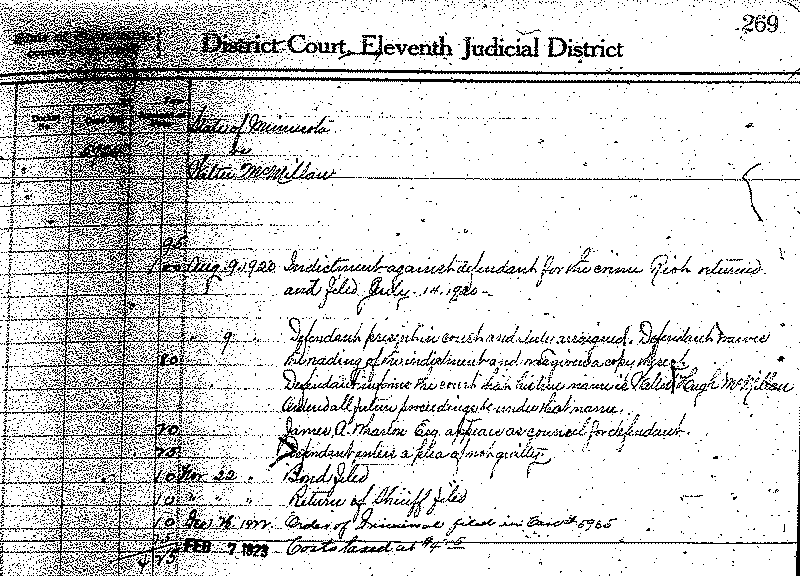 269
District Court, Eleventh Judicial District
State of Minnesota
vs
Walter McMillan
25
Aug. 9, 1920 Indictment against defendant for the crime Riot returned
and filed July 14 1920 -
" 9 " Defendant present in court and duly arraigned. Defendant waives
10 the reading of the indictment and was given a copy thereof.
" Defendant informs the court that his true name is Walter Hugh McMillan
Ordered all future proceedings be under that name.
20 James A. Wharton Esq. appears as counsel for defendant.
75 Defendant enters a plea of not guilty
10 Nov 22 " Bond filed
10 " " " Return of Sheriff filed
10 Dec 1922 Order of Dismissal filed in Case # 5965
FEB 7 1923 Costs taxed at $4
4 75